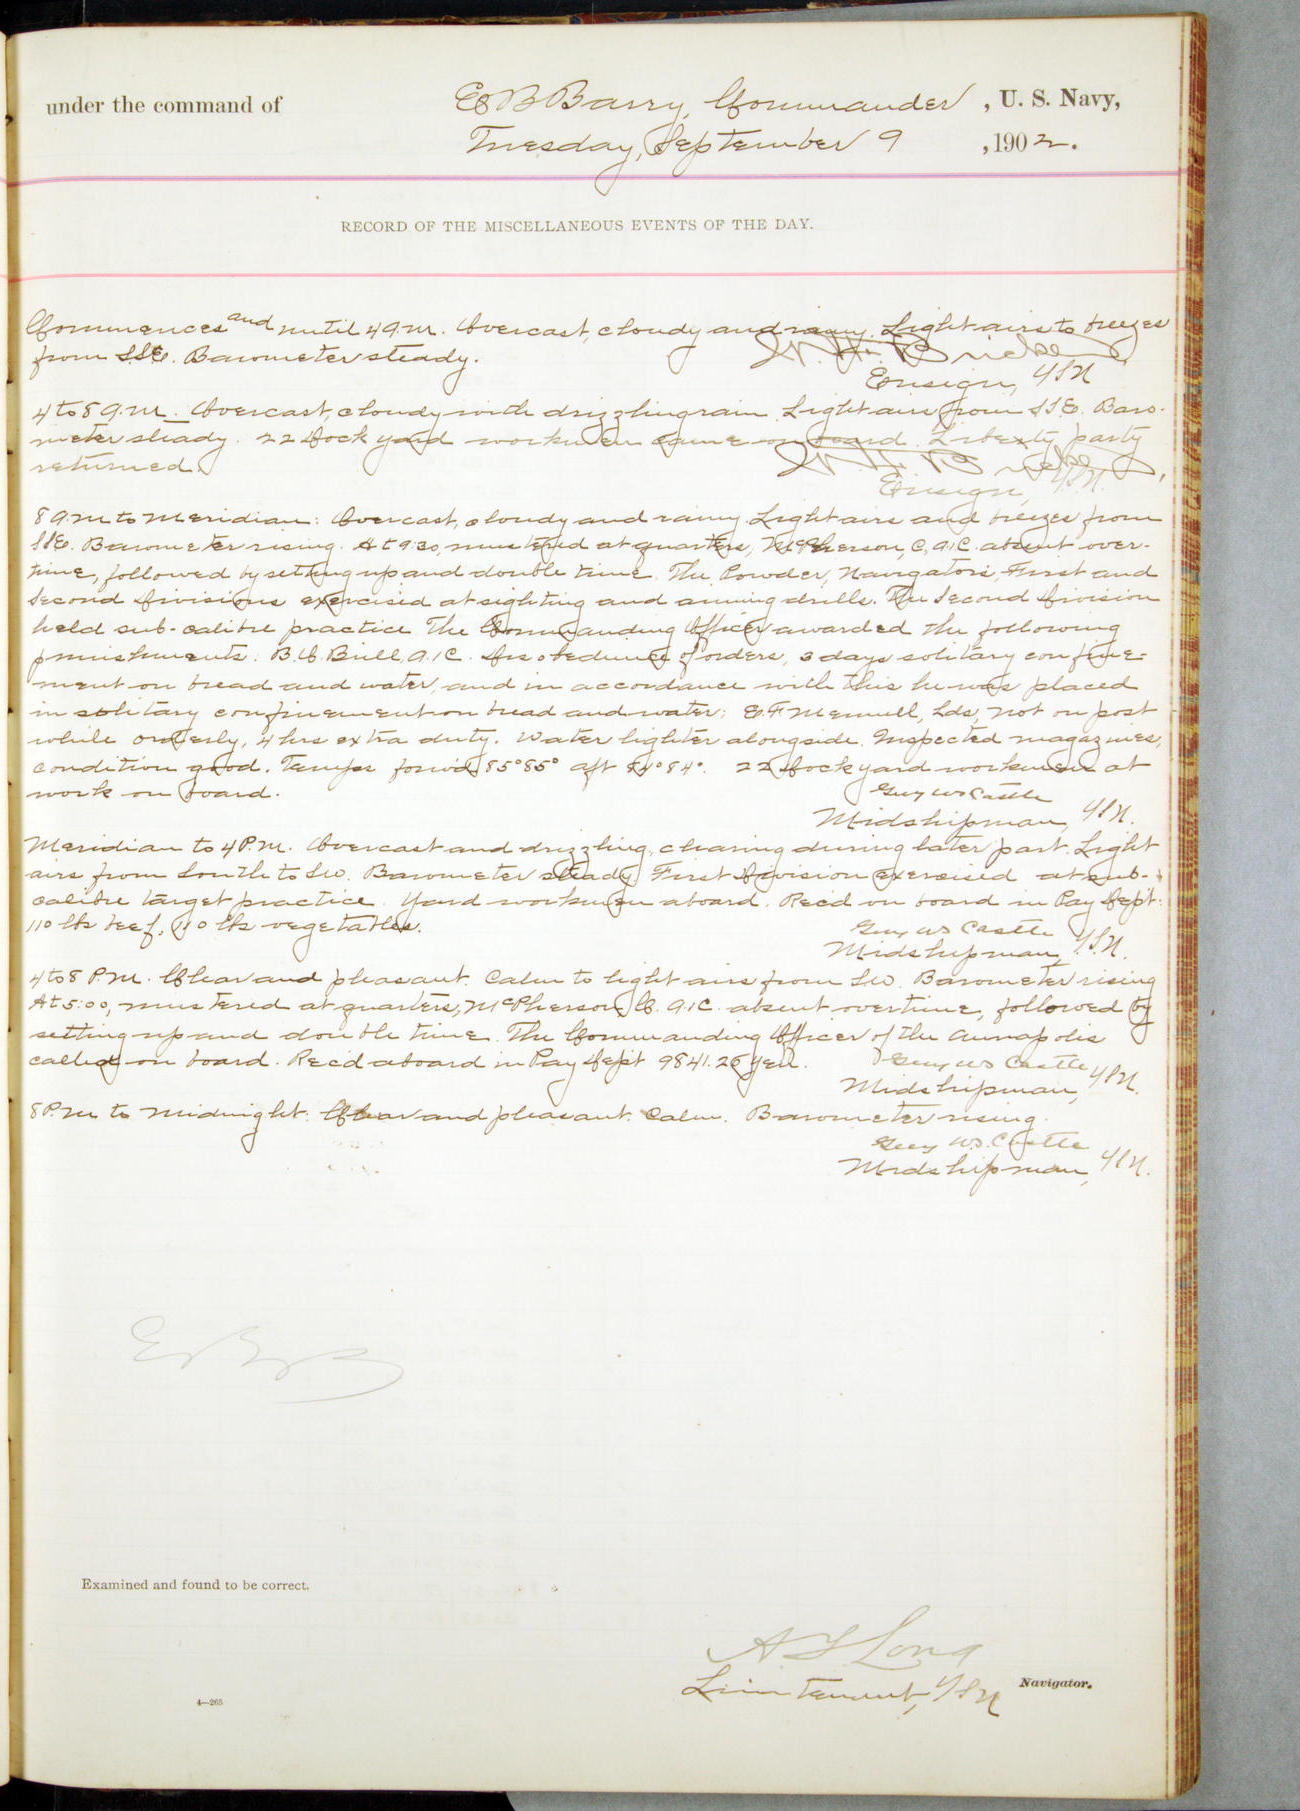 under the command of E B Barry, Commander , U. S. Navy,
Tuesday, September 9 , 1902.
RECORD OF THE MISCELLANEOUS EVENTS OF THE DAY.
Commences and until 4 A.M. Overcast, cloudy and rainy. Light airs to breezes
from SSE. Barometer steady.
Ensign, USN
4 to 8 A.M. Overcast, cloudy with drizzling rain Light airs from SSE. Baro-
meter steady. 22 dock yard workmen came on board. Liberty party
returned.
Ensign, USN.
8 A.M to Meridian: Overcast, cloudy and rainy. Light airs and breezes from
SSE. Barometer rising. At 9:30, mustered at quarters, McPherson, C, A.1.C. absent over-
time, followed by setting up and double time. The Powder, Navigator's, First and
Second Divisions exercised at sighting and aiming drills. The Second Division
held sub-calibre practice The Commanding Officer awarded the following
punishments: B. C. Bull, A.1.C. disobedience of orders, 3 days solitary confine-
ment on bread and water, and in accordance with this he was placed
in solitary confinement on bread and water; E. F. Merrull, Lds, not on post
while orderly, 4 hrs extra duty. Water lighter alongside. Inspected magazines,
condition good. Temps forw'd 85° 85° aft 84° 84°. 22 dock yard workmen at
work on board.
Guy W S Castle
Midshipman, USN.
Meridian to 4 P.M. Overcast and drizzling, clearing during later part. Light
airs from South to SW. Barometer steady First Division exercised at sub-
calibre target practice. Yard workmen aboard. Rec'd on board in Pay Dep't:
110 lbs beef, 110 lbs vegetables.
Guy W S Castle
Midshipman, USN.
4 to 8 P.M. Clear and pleasant. Calm to light airs from SW. Barometer rising
At 5:00, mustered at quarters, McPherson, C. A.1.C. absent overtime, followed by
setting up and double time. The Commanding Officer of the Annapolis
called on board. Rec'd aboard in Pay Dep't 9841.26 yen.
Guy W S Castle
Midshipman, USN.
8 P.M to Midnight. Clear and pleasant. Calm. Barometer rising.
Guy W.S. Castle
Midshipman, USN.
E B B
Examined and found to be correct.
A T Long
Lieutenant, USN Navigator.
4—265